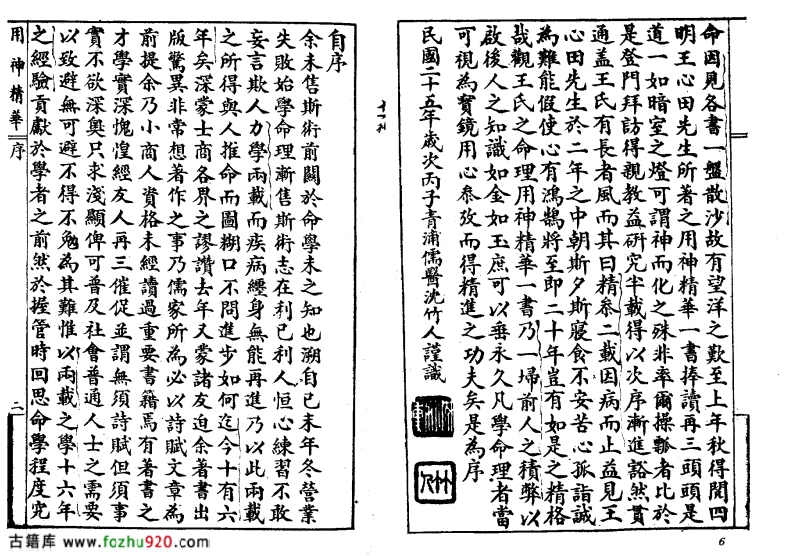 命因見各書一盤散沙故有望洋之歎至上年秋得閱四
明王心田先生所著之用神精華一書捧讀再三頭頭是
道一如暗室之燈可謂神而化之殊非率爾操瓢者比於
是登門拜訪得親教益研究半載得以次序漸進豁然貫
通蓋王氏有長者風而其曰精參二載因病而止益見王
心田先生於二年之中朝斯夕斯寢食不安苦心孤詣誠
為難能假使心有鴻鵠將至即二十年豈有如是之精格
哉觀王氏之命理用神精華一書乃一埽前人之積弊以
啟後人之知識如金如玉庶可以垂永久凡學命理者當
可視為寶鏡用心參攷而得精進之功夫矣是為序
民國二十五年歲次丙子青浦儒醫沈竹人謹識
自序
余未售斯術前關於命學未之知也溯自己未年冬營業
失敗始學命理漸售斯術志在利己利人恒心練習不敢
妄言欺人力學兩載而疾病纏身無能再進乃以此兩載
之所得與人推命而圖糊口不問進步如何迄今十有六
年矣深蒙士商各界之謬讚去年又蒙諸友迫余著書出
版驚異非常想著作之事乃儒家所為必以詩賦文章為
前提余乃小商人資格未經讀過重要書籍焉有著書之
才學實深愧惶經友人再三催促並謂無須詩賦但須事
實不欲深奧只求淺顯俾可普及社會普通人士之需要
以致避無可避不得不勉為其難惟以兩載之學十六年
之經驗貢獻於學者之前然於握管時回思命學程度究
用神精華 序
二
古籍库 www.fozhu920.com
6